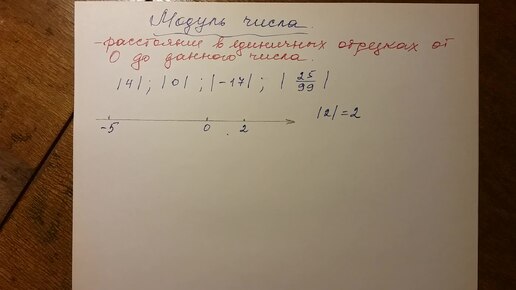 Модуль числа.
-расстояние в единичных отрезках от
0 до данного числа.
|4| ; |0| ; |-17| ; |25/99|
-5 0 2 |2| = 2